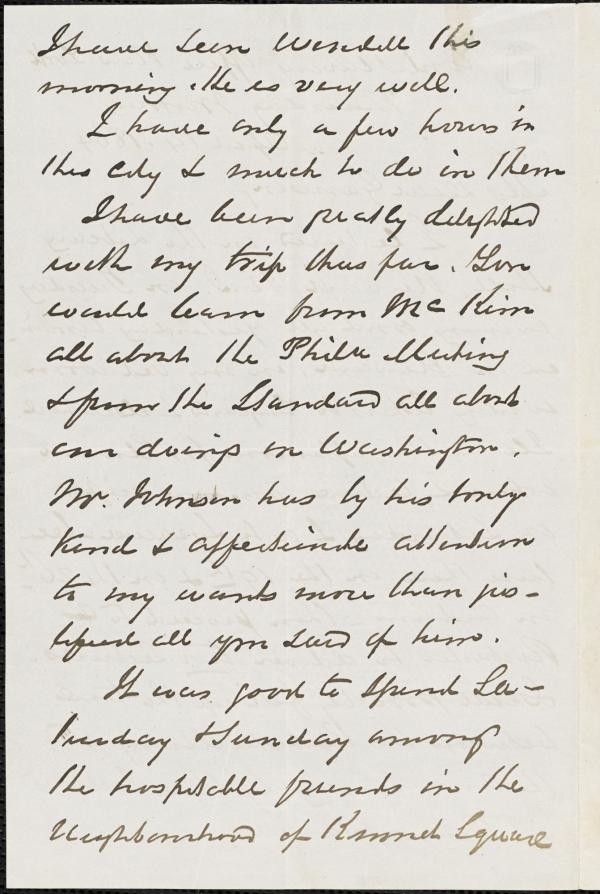 I have seen Wendell this
morning. He is very well.
I have only a few hours in
this city & much to do in them
I have been greatly delighted
with my trip thus far. You
would learn from McKim
all about the Phila Meeting
& from the Standard all about
our doings in Washington.
Mr. Johnson has by his truly
kind & affectionate attention
to my wants more than jus-
tified all you said of him.
It was good to spend Sa-
turday & Sunday among
the hospitable friends in the
Neighbourhood of Kennet Square